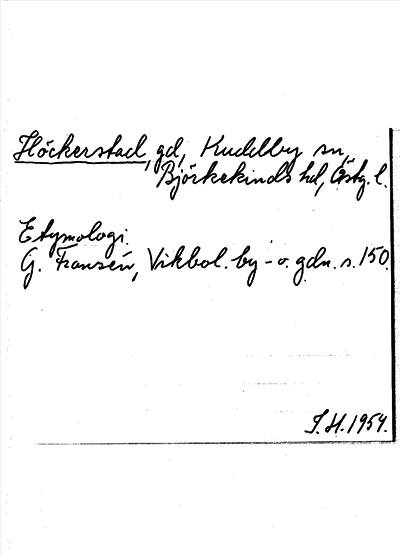 Höckerstad, gd, Kuddby sn,
Björkekinds hd, Östg. l.
Etymologi.
G. Franzén, Vikbol. by- o. gdn. s. 150.
I. H. 1954.